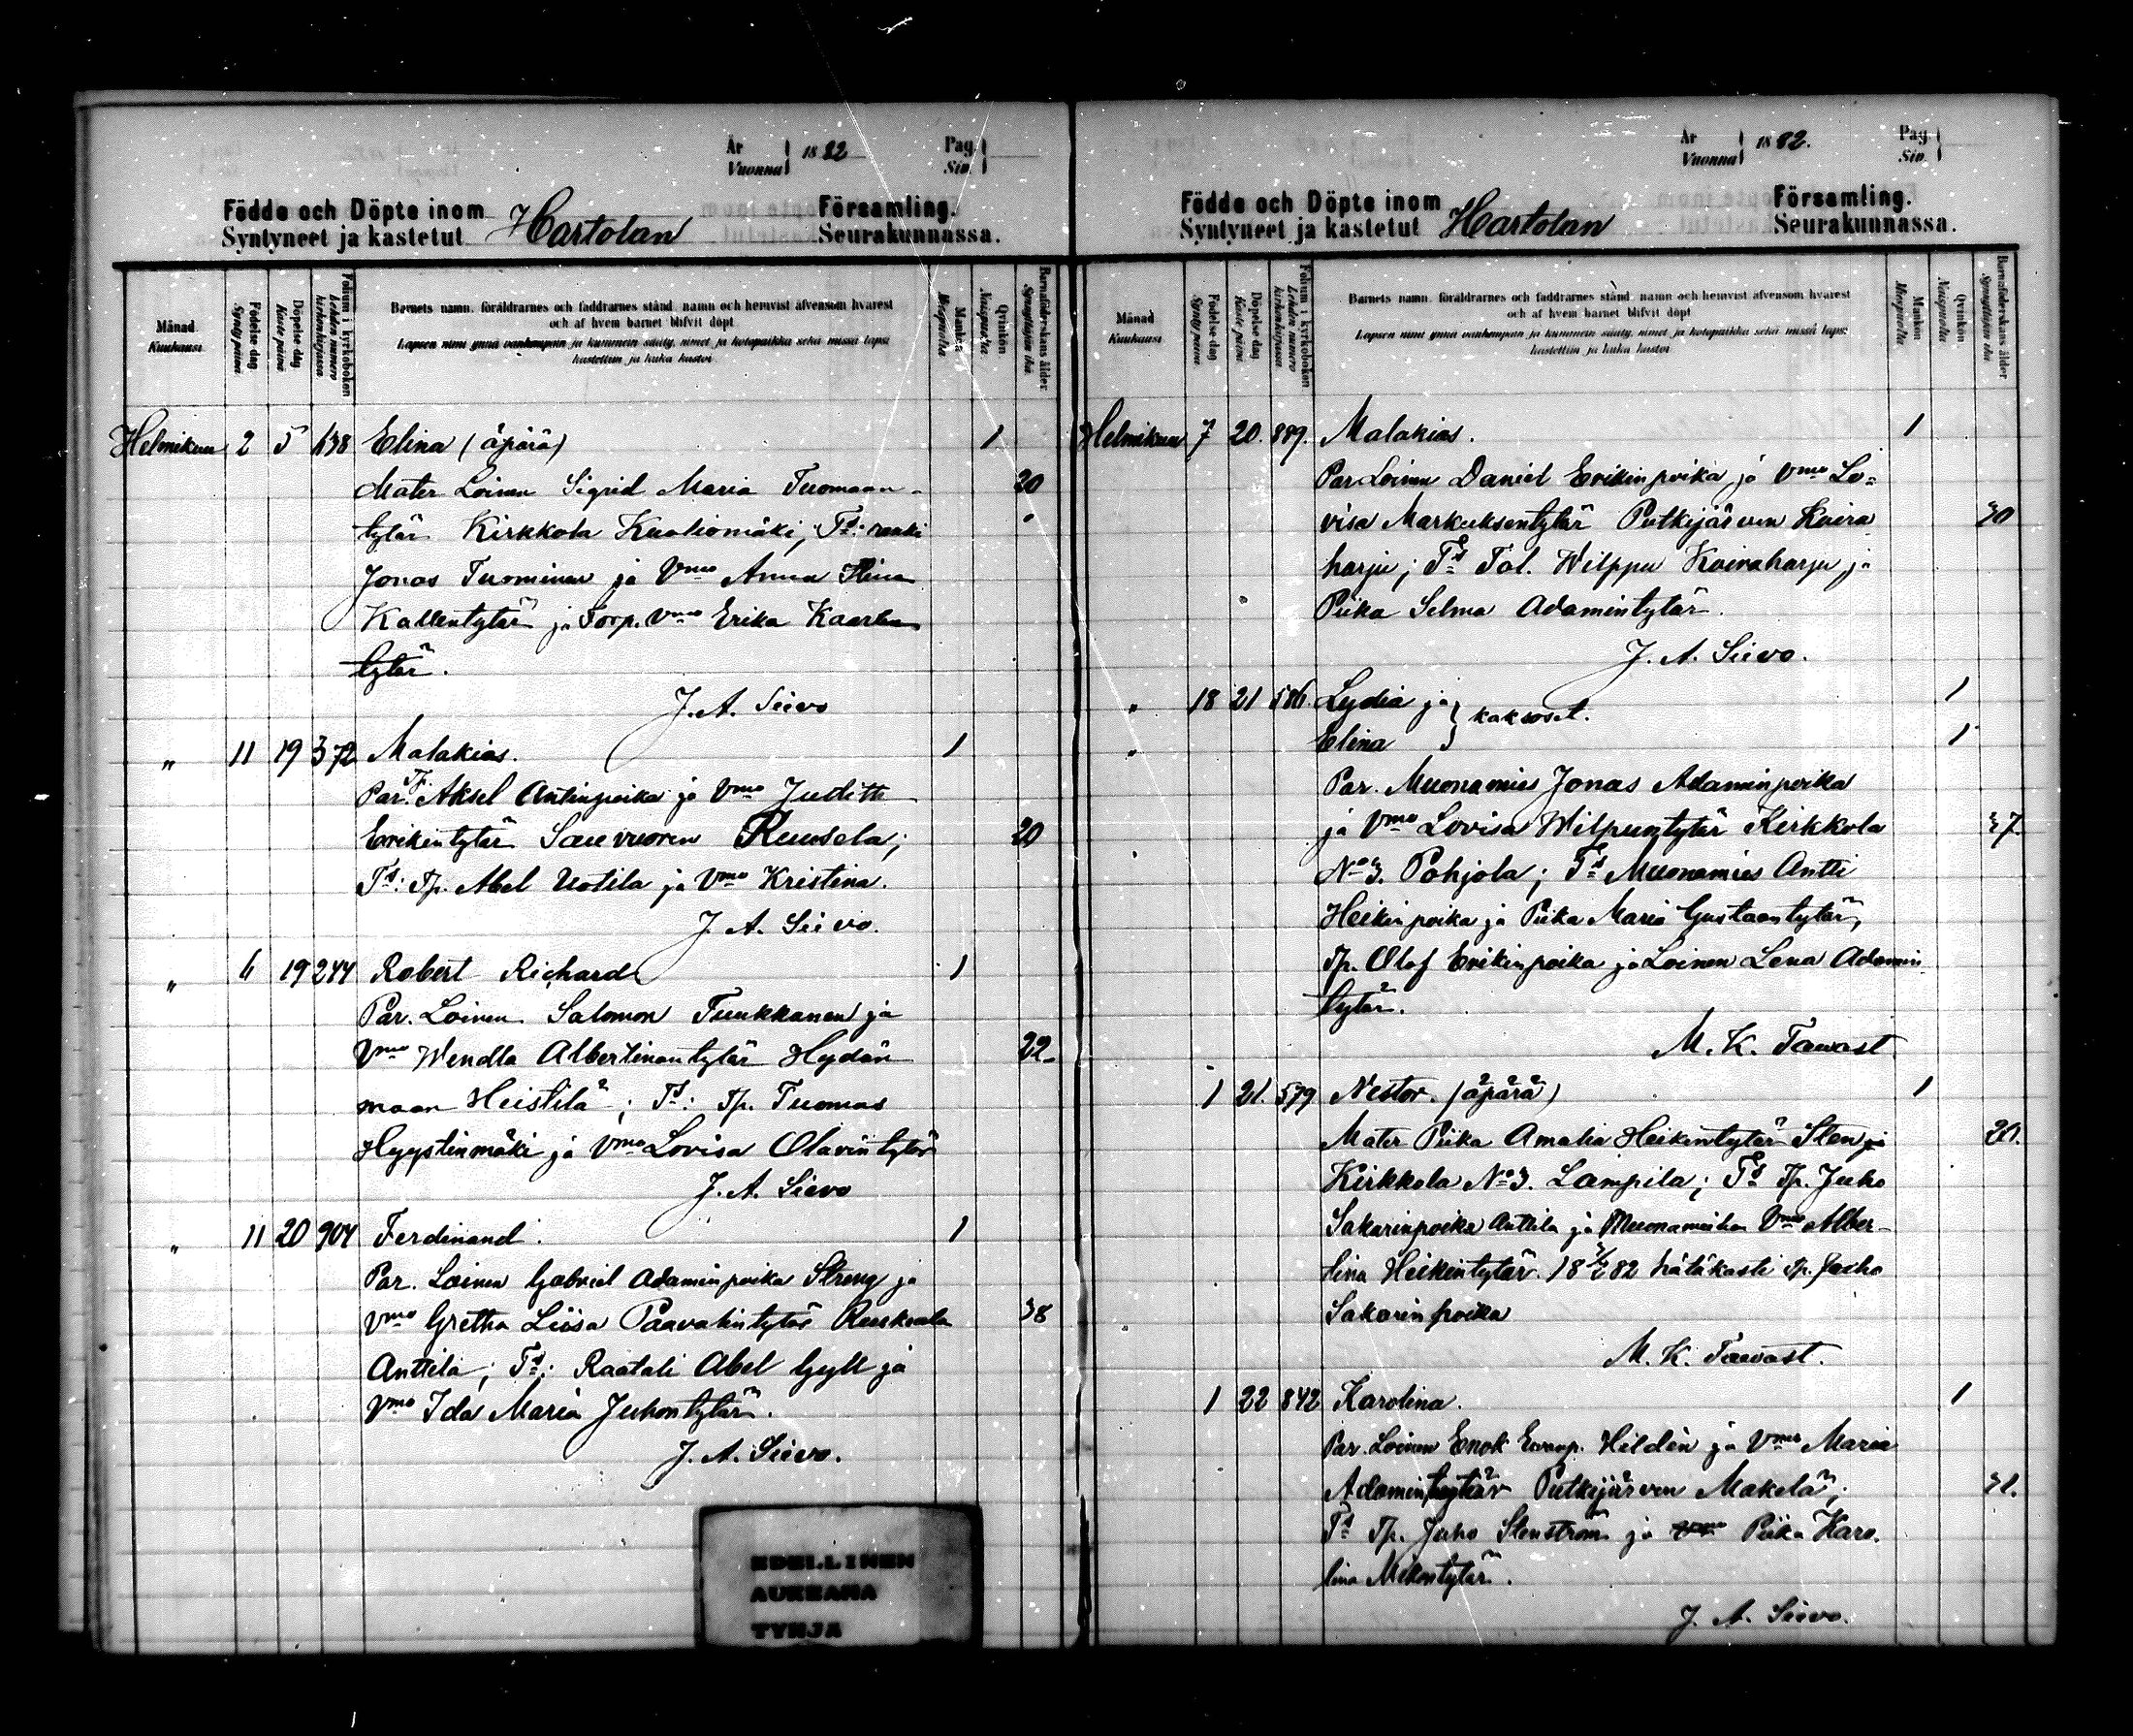 År
Vuonna 1882
Pag.
Siv.
Födde och Döpte inom
Syntyneet ja kastetut Hartolan Församling.
Seurakunnassa.
Månad
Kuukausi
Födelse dag
Synty päivä
Döpelse dag
Kaste päivä
Folium i kyrkoboken
Lehden numero kirkonkirjassa
Barnets namn, föräldrarnes och faddrarnes stånd, namn och hemvist äfvensom hvarest
och af hvem barnet blifvit döpt
Lapsen nimi ynnä vanhempain ja kummein sääty, nimet ja kotopaikka sekä missä lapsi
kastettiin ja kuka kastoi
Mankön
Miespuolta
Qvinkön
Naispuolta
Barnaföderskans ålder
Synnyttäjän ikä
Helmikuu 2 5 638 Elina (äpärä) 1
Mater Loinen Sigrid Maria Tuomaan- 20
tytär Kirkkola Kualiomäki; Ts: renki
Jonas Tuominen ja Vmo Anna Stina
Kallentytär ja Torp. Vmo Erika Kaarlen
tytär.
J. A. Sievo
" 11 19 372 Malakias. 1
Par. Tp. Aksel Antinpoika ja Vmo Judith
Erikintytär Sauvuoren Ruusela; 20
Ts: Tp. Abel Uotila ja Vmo Kristina.
J. A. Sievo.
" 6 19 244 Robert Richard 1
Par. Loinen Salomon Tuukkanen ja
Vmo Wendla Albertinantytär Hydän 22
maan Heistilä; Ts: Tp. Tuomas
Hyystinmäki ja Vmo Lovisa Olavintytär
J. A. Sievo
" 11 20 904 Ferdinand. 1
Par. Loinen Gabriel Adaminpoika Streng ja
Vmo Gretha Liisa Paavalintytär Ruskeala 38
Anttila; Ts: Raatali Abel Gyll ja
Vmo Ida Maria Juhontytär.
J. A. Sievo.
EDELLINEN
AUKEAMA
TYHJÄ
År
Vuonna 1882.
Pag
Siv.
Födde och Döpte inom
Syntyneet ja kastetut Hartolan Församling.
Seurakunnassa.
Månad
Kuukausi
Födelse-dag
Synty päivä
Döpelse-dag
Kaste päivä
Folium i kyrkoboken
Lehden numero kirkonkirjassa
Barnets namn, föräldrarnes och faddrarnes stånd, namn och hemvist äfvensom hvarest
och af hvem barnet blifvit döpt
Lapsen nimi ynnä vanhempain ja kummein sääty, nimet ja kotopaikka sekä missä lapsi
kastettiin ja kuka kastoi
Mankön
Miespuolta
Qvinkön
Naispuolta
Barnaföderskans ålder
Synnyttäjän ikä
Helmikuu 7 20. 889. Malakias. 1
Par. Loinen Daniel Erikinpoika ja Vmo Lo-
visa Markuksentytär Putkijärven Koira 30
harju; Ts Tal. Wilppu Koiraharju ja
Piika Selma Adamintytär.
J. A. Sievo.
" 18 21 586 Lydia ja } kaksoset. 1
" Elina 1
Par. Muonamies Jonas Adaminpoika
ja Vmo Lovisa Wilpuntytär Kirkkola 37
No 3. Pohjola; Ts Muonamies Antti
Heikinpoika ja Piika Maria Gustaantytär,
Tp. Olof Erikinpoika ja Loinen Lena Adamin
tytär.
M. K. Tawast
1 21. 579 Nestor. (äpärä) 1
Mater Piika Amalia Heikintytär Sten ja 20.
Kirkkola No 3. Lampila; Ts Tp. Juho
Sakarinpoika Anttila ja Muonamiehen Vmo Alber-
tina Heikintytär. 18 2/2 82 hätäkasti Tp. Juho
Sakarinpoika
M. K. Tawast.
1 22 842 Karolina. 1
Par. Loinen Enok Hildén ja Vmo Maria
Adamintytär Putkijärven Makelä; 31.
Ts Tp. Juho Stenström ja Piika Karo.
lina Mikontytär.
J. A. Sievo.